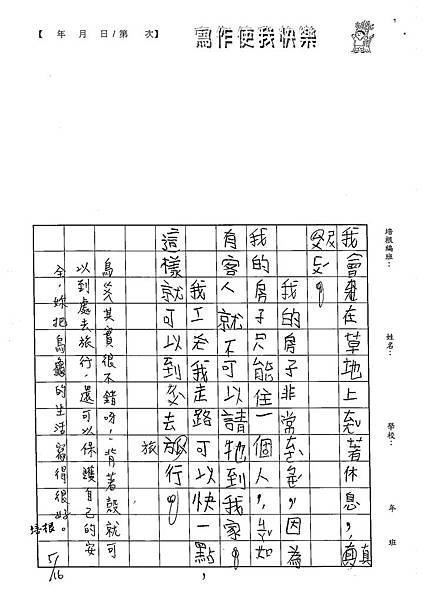 【 年 月 日/第 次】
寫作使我快樂
培根編班： 姓名： 學校： 年 班
我會在草地上著休息，真
我的房子非常，因為
我的房子只能住一個人，如
有客人就不可以請牠到我家。
我我走路可以快一點
這樣就可以到去旅行。
旅
烏其實很不錯呀，背著殼就可
以到處去旅行，還可以保護自己的安
全，妳把烏龜的生活寫得很好。
培根
5/16